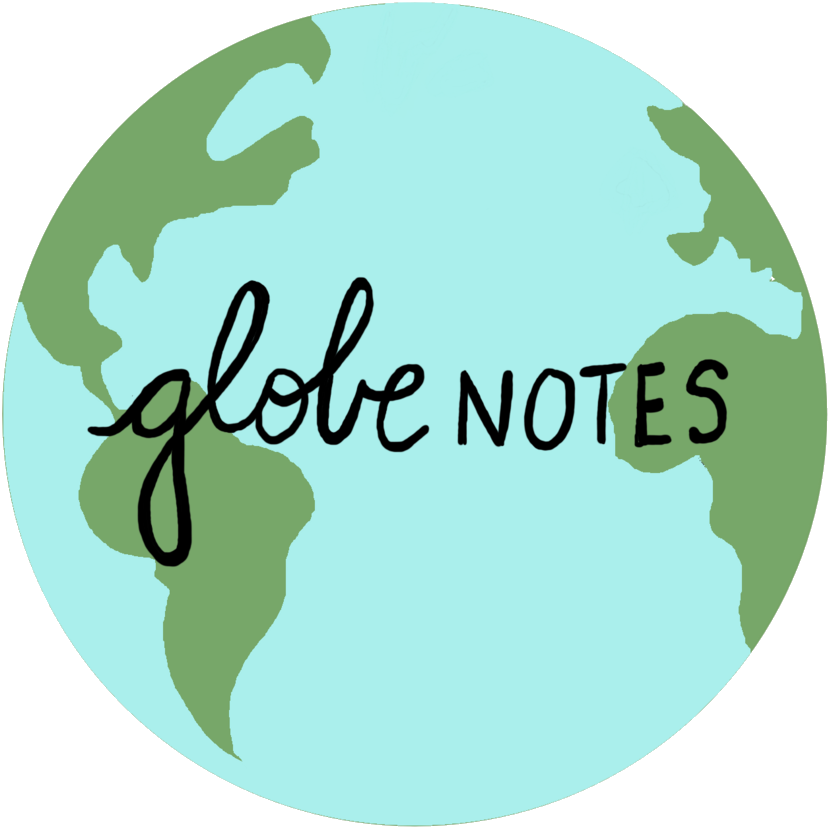 globe NOTES